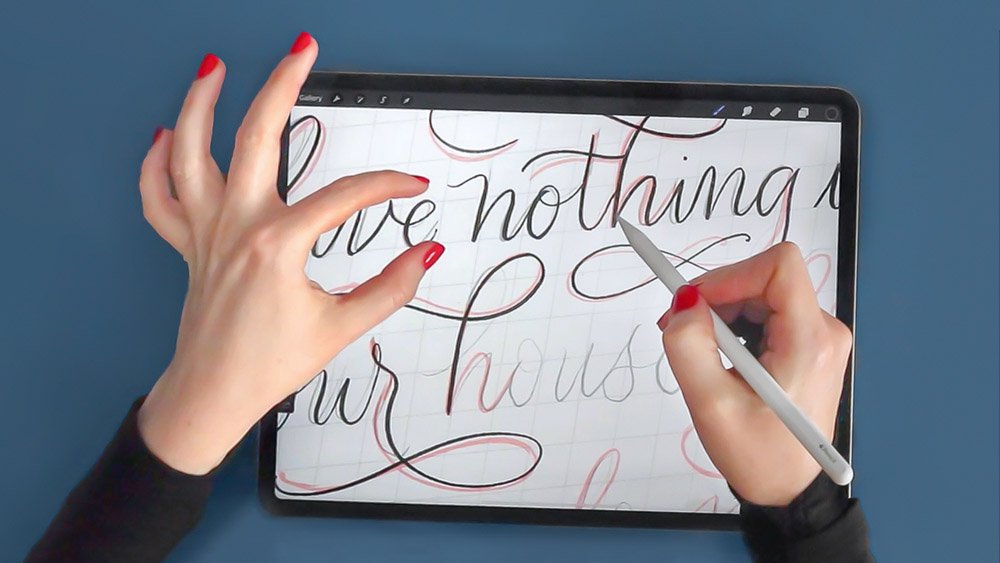 Gallery
have nothing i
our house